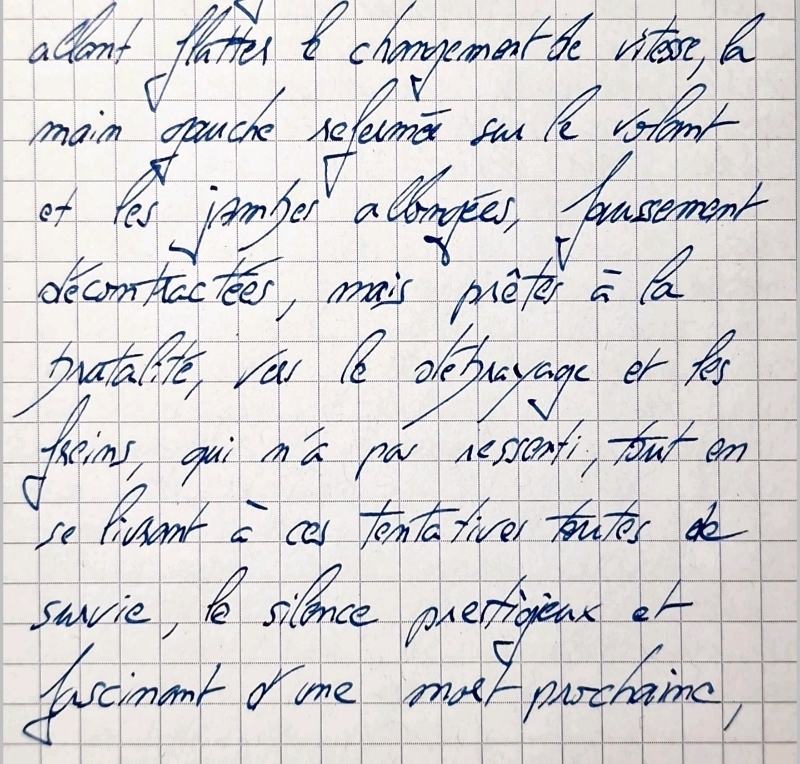 allant flatter le changement de vitesse, la
main gauche refermée sur le volant
et les jambes allongées, faussement
décontractées, mais prêtes à la
brutalité, vers le débrayage et les
freins, qui n'a pas ressenti, tout en
se livrant à ces tentatives toutes de
survie, le silence prestigieux et
fascinant d'une mort prochaine,